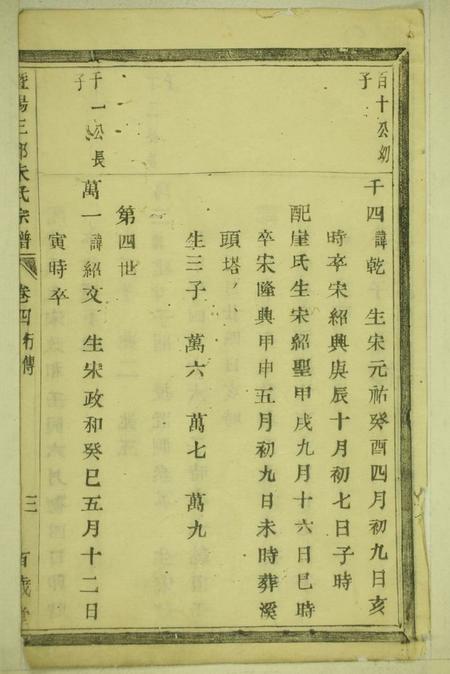 百十公幼
子
千四 諱乾 生宋元祐癸酉四月初九日亥
時卒宋紹興庚辰十月初七日子時
配崖氏生宋紹聖甲戌九月十六日巳時
卒宋隆興甲申五月初九日未時葬溪
頭塔
生三子 萬六 萬七 萬九
第四世
千一公長
子
萬一 諱紹文 生宋政和癸巳五月十二日
寅時卒
氏宗譜 卷四 三 百歲堂